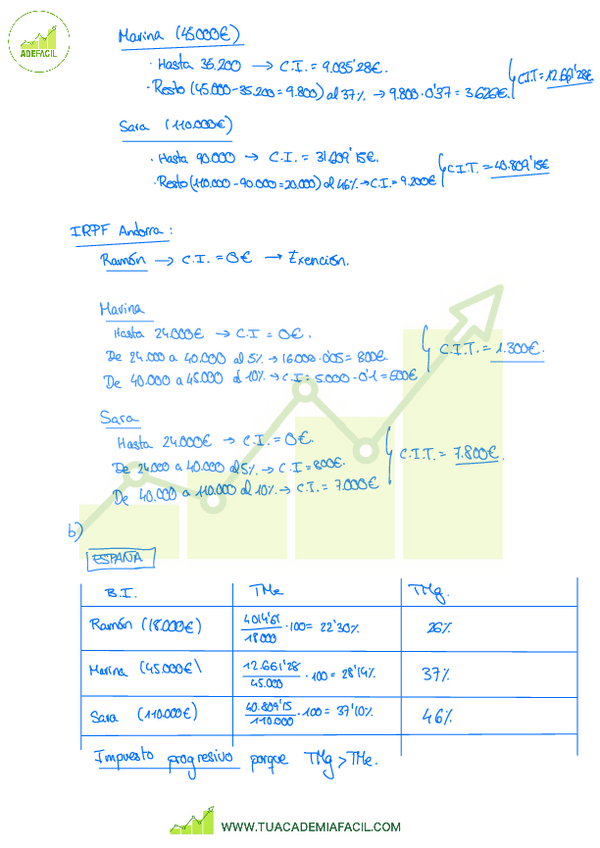 ADEFACIL
Marina (45.000€)
· Hasta 35.200 → C.I. = 9.035'28€.
· Resto (45.000-35.200 = 9.800) al 37% → 9.800 · 0'37 = 3.626€.
C.I.T = 12.661'28€
Sara (110.000€)
· Hasta 90.000 → C.I. = 31.609'15€.
· Resto (110.000-90.000=20.000) al 46% → C.I. = 9.200€
C.I.T. = 40.809'15€
IRPF Andorra:
Ramón → C.I. = 0€ → Exención.
Marina
Hasta 24.000€ → C.I = 0€.
De 24.000 a 40.000 al 5% → 16.000 · 0'05 = 800€.
De 40.000 a 45.000 al 10% → C.I = 5.000 · 0'1 = 500€
C.I.T. = 1.300€.
Sara
Hasta 24.000€ → C.I. = 0€.
De 24.000 a 40.000 al 5% → C.I = 800€.
De 40.000 a 110.000 al 10% → C.I. = 7.000€
C.I.T. = 7.800€.
b)
ESPAÑA
B.I. TMe TMg.
Ramón (18.000€) 4014'61/18.000 · 100 = 22'30% 26%
Marina (45.000€) 12.661'28/45.000 · 100 = 28'14% 37%
Sara (110.000€) 40.809'15/110.000 · 100 = 37'10% 46%
Impuesto progresivo porque TMg > TMe.
WWW.TUACADEMIAFACIL.COM